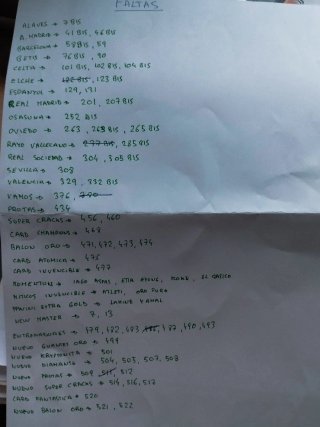 FALTAS
ALAVES → 7 BIS
A. MADRID → 41 BIS, 46 BIS
BARCELONA → 58 BIS, 59
BETIS → 76 BIS, 90
CELTA → 101 BIS, 102 BIS, 104 BIS
ELCHE → 122 BIS, 123 BIS
ESPANYOL → 129, 131
REAL MADRID → 201, 207 BIS
OSASUNA → 252 BIS
OVIEDO → 263, 263 BIS, 265 BIS
RAYO VALLECANO → 277 BIS, 285 BIS
REAL SOCIEDAD → 304, 305 BIS
SEVILLA → 308
VALENCIA → 329, 332 BIS
VAMOS → 376, 390
PROTAS → 434
SUPER CRACKS → 456, 460
CARD CHAMPIONS → 468
BALON ORO → 471, 472, 473, 474
CARD ATOMICA → 475
CARD INVENCIBLE → 477
MOMENTUM → IAGO ASPAS, ETTA EYONG, EL CLASICO
MITICOS INVENCIBLE → ATLETI, ORO PURO
PANINI EXTRA GOLD → LAMINE YAMAL
NEW MASTER → 7, 13
ENTRENADORES → 479, 482, 483, 487, 490, 493
NUEVO GUANTES ORO → 499
NUEVO KRYPTONITA → 501
NUEVO DIAMANTE → 504, 505, 507, 508
NUEVO PROTAS → 509, 511, 512
NUEVO SUPER CRACKS → 515, 516, 517
CARD FANTASTICA → 520
NUEVO BALON ORO → 521, 522